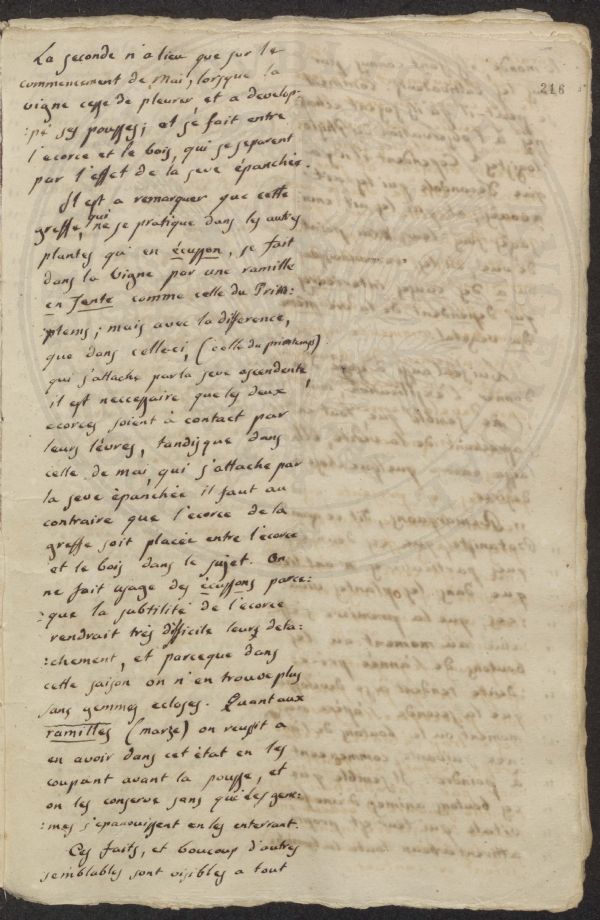 216
La seconde n'a lieu que sur le
commencement de Mai, lorsque la
vigne cesse de pleurer, et a develop-
:pé ses pousses; et se fait entre
l'ecorce et le bois, qui se separent
par l'effet de la seve épanchée.
Il est a remarquer que cette
greffe, qui ne se pratique dans les autres
plantes qu'en écusson, se fait
dans la vigne par une ramille
en fente comme celle du Prin:
:plems; mais avec la difference,
que dans celle-ci, (celle du printemps)
qui s'attache par la seve ascendente,
il est neccessaire que les deux
ecorces soient à contact par
leurs lévres, tandisque dans
celle de mai, qui s'attache par
la seve épanchée il faut au
contraire que l'ecorce de la
greffe soit placée entre l'écorce
et le bois dans le sujet. On
ne fait usage des écussons parce:
:que la subtilité de l'ecorce
rendrait très difficile leurs deta:
:chement, et parceque dans
cette saison on n'en trouve plus
sans gemmes ecloses. Quant aux
ramilles (marze) on reussit a
en avoir dans cet état en les
coupant avant la pousse, et
on les conserve sans que les gem:
:mes s'epanouissent en les enterrant.
Ces faits, et boucoup d'autres
semblables sont visibles a tout